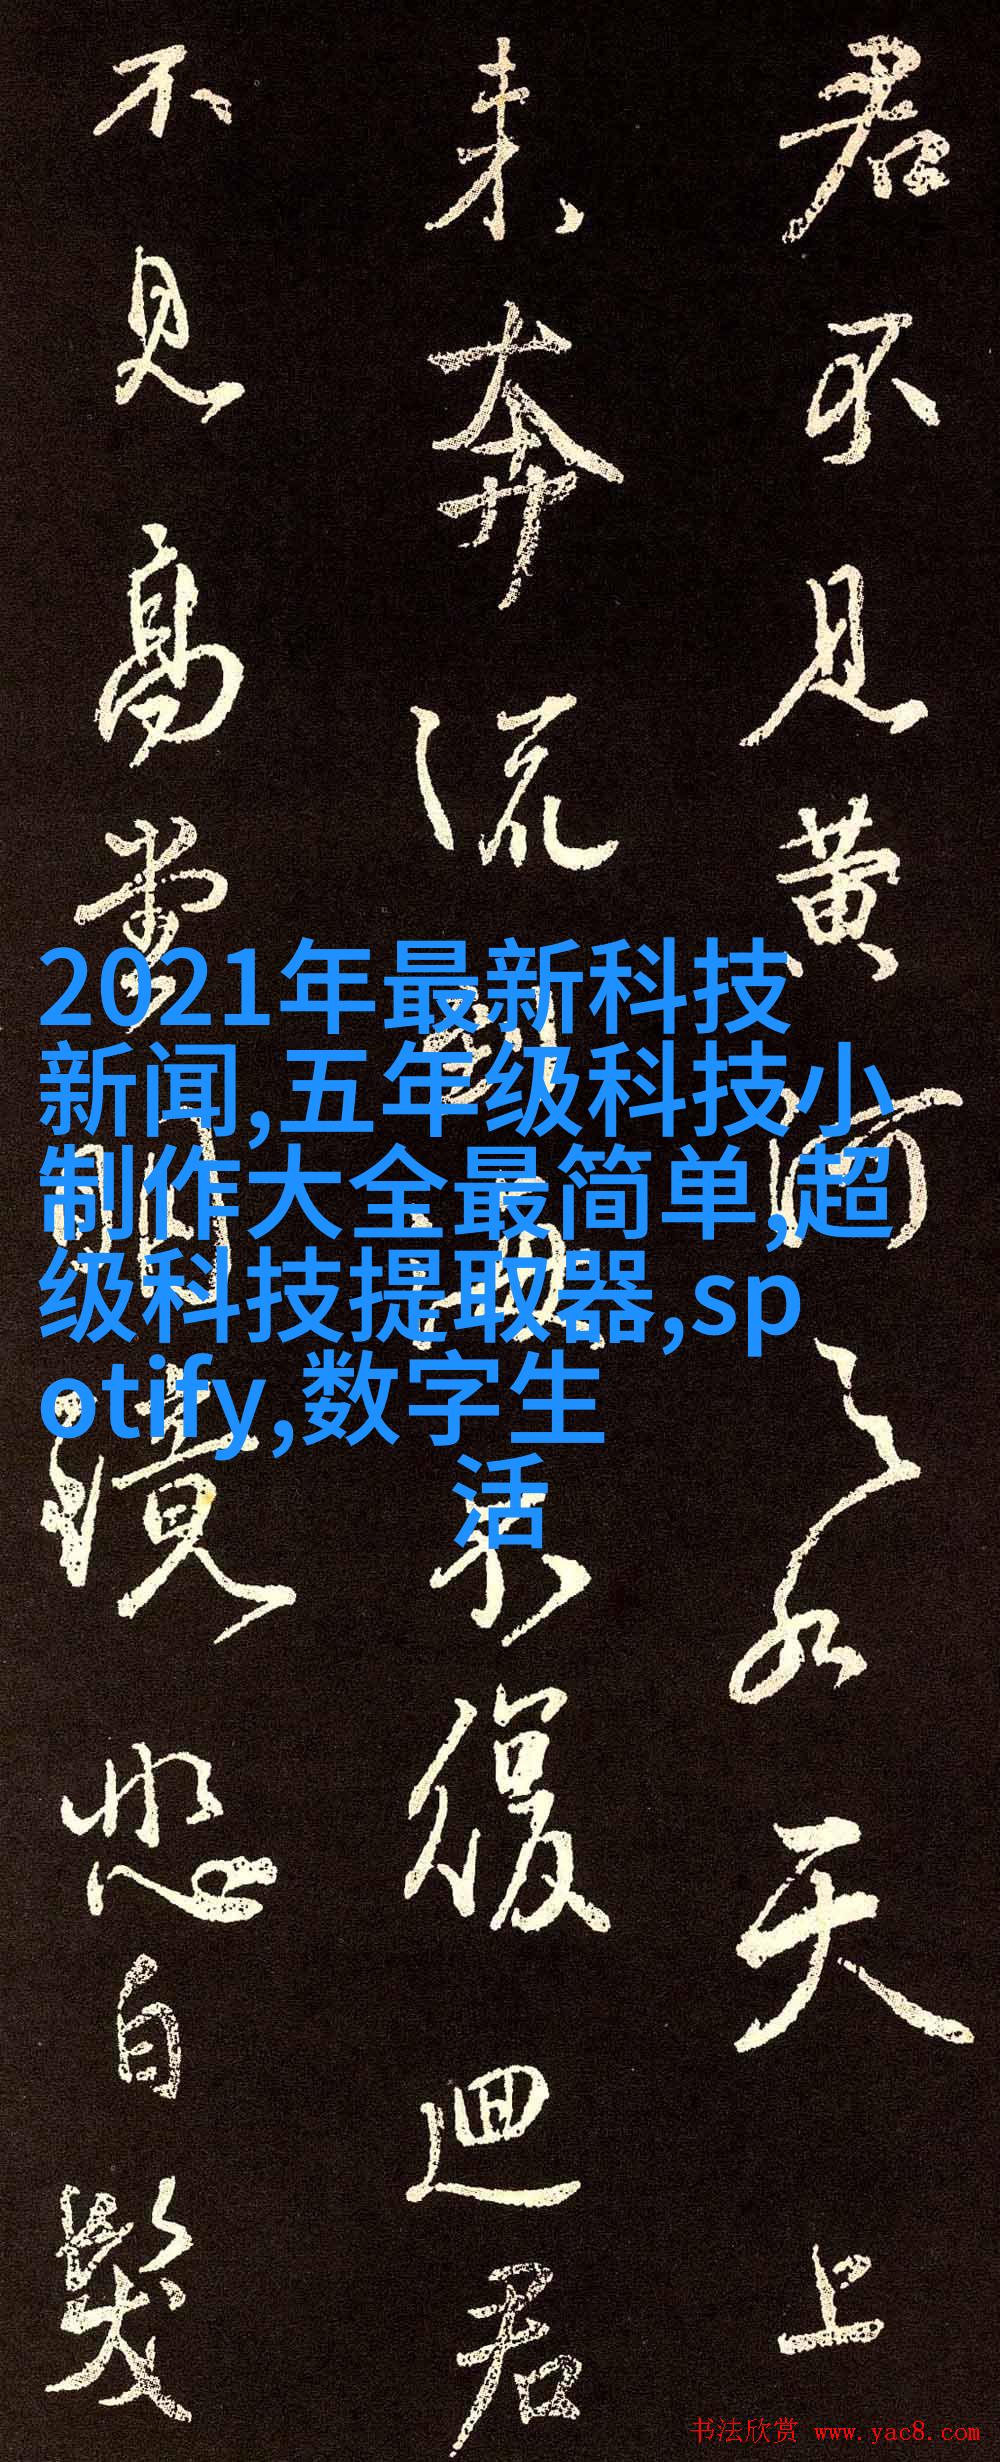 君不見黄河之水天上
来奔流到海不復迴君
不見高堂明鏡悲白髮
2021年最新科技
新闻,五年级科技小
制作大全最简单,超
级科技提取器,sp
otify,数字生
活
书法欣赏 www.yac8.com